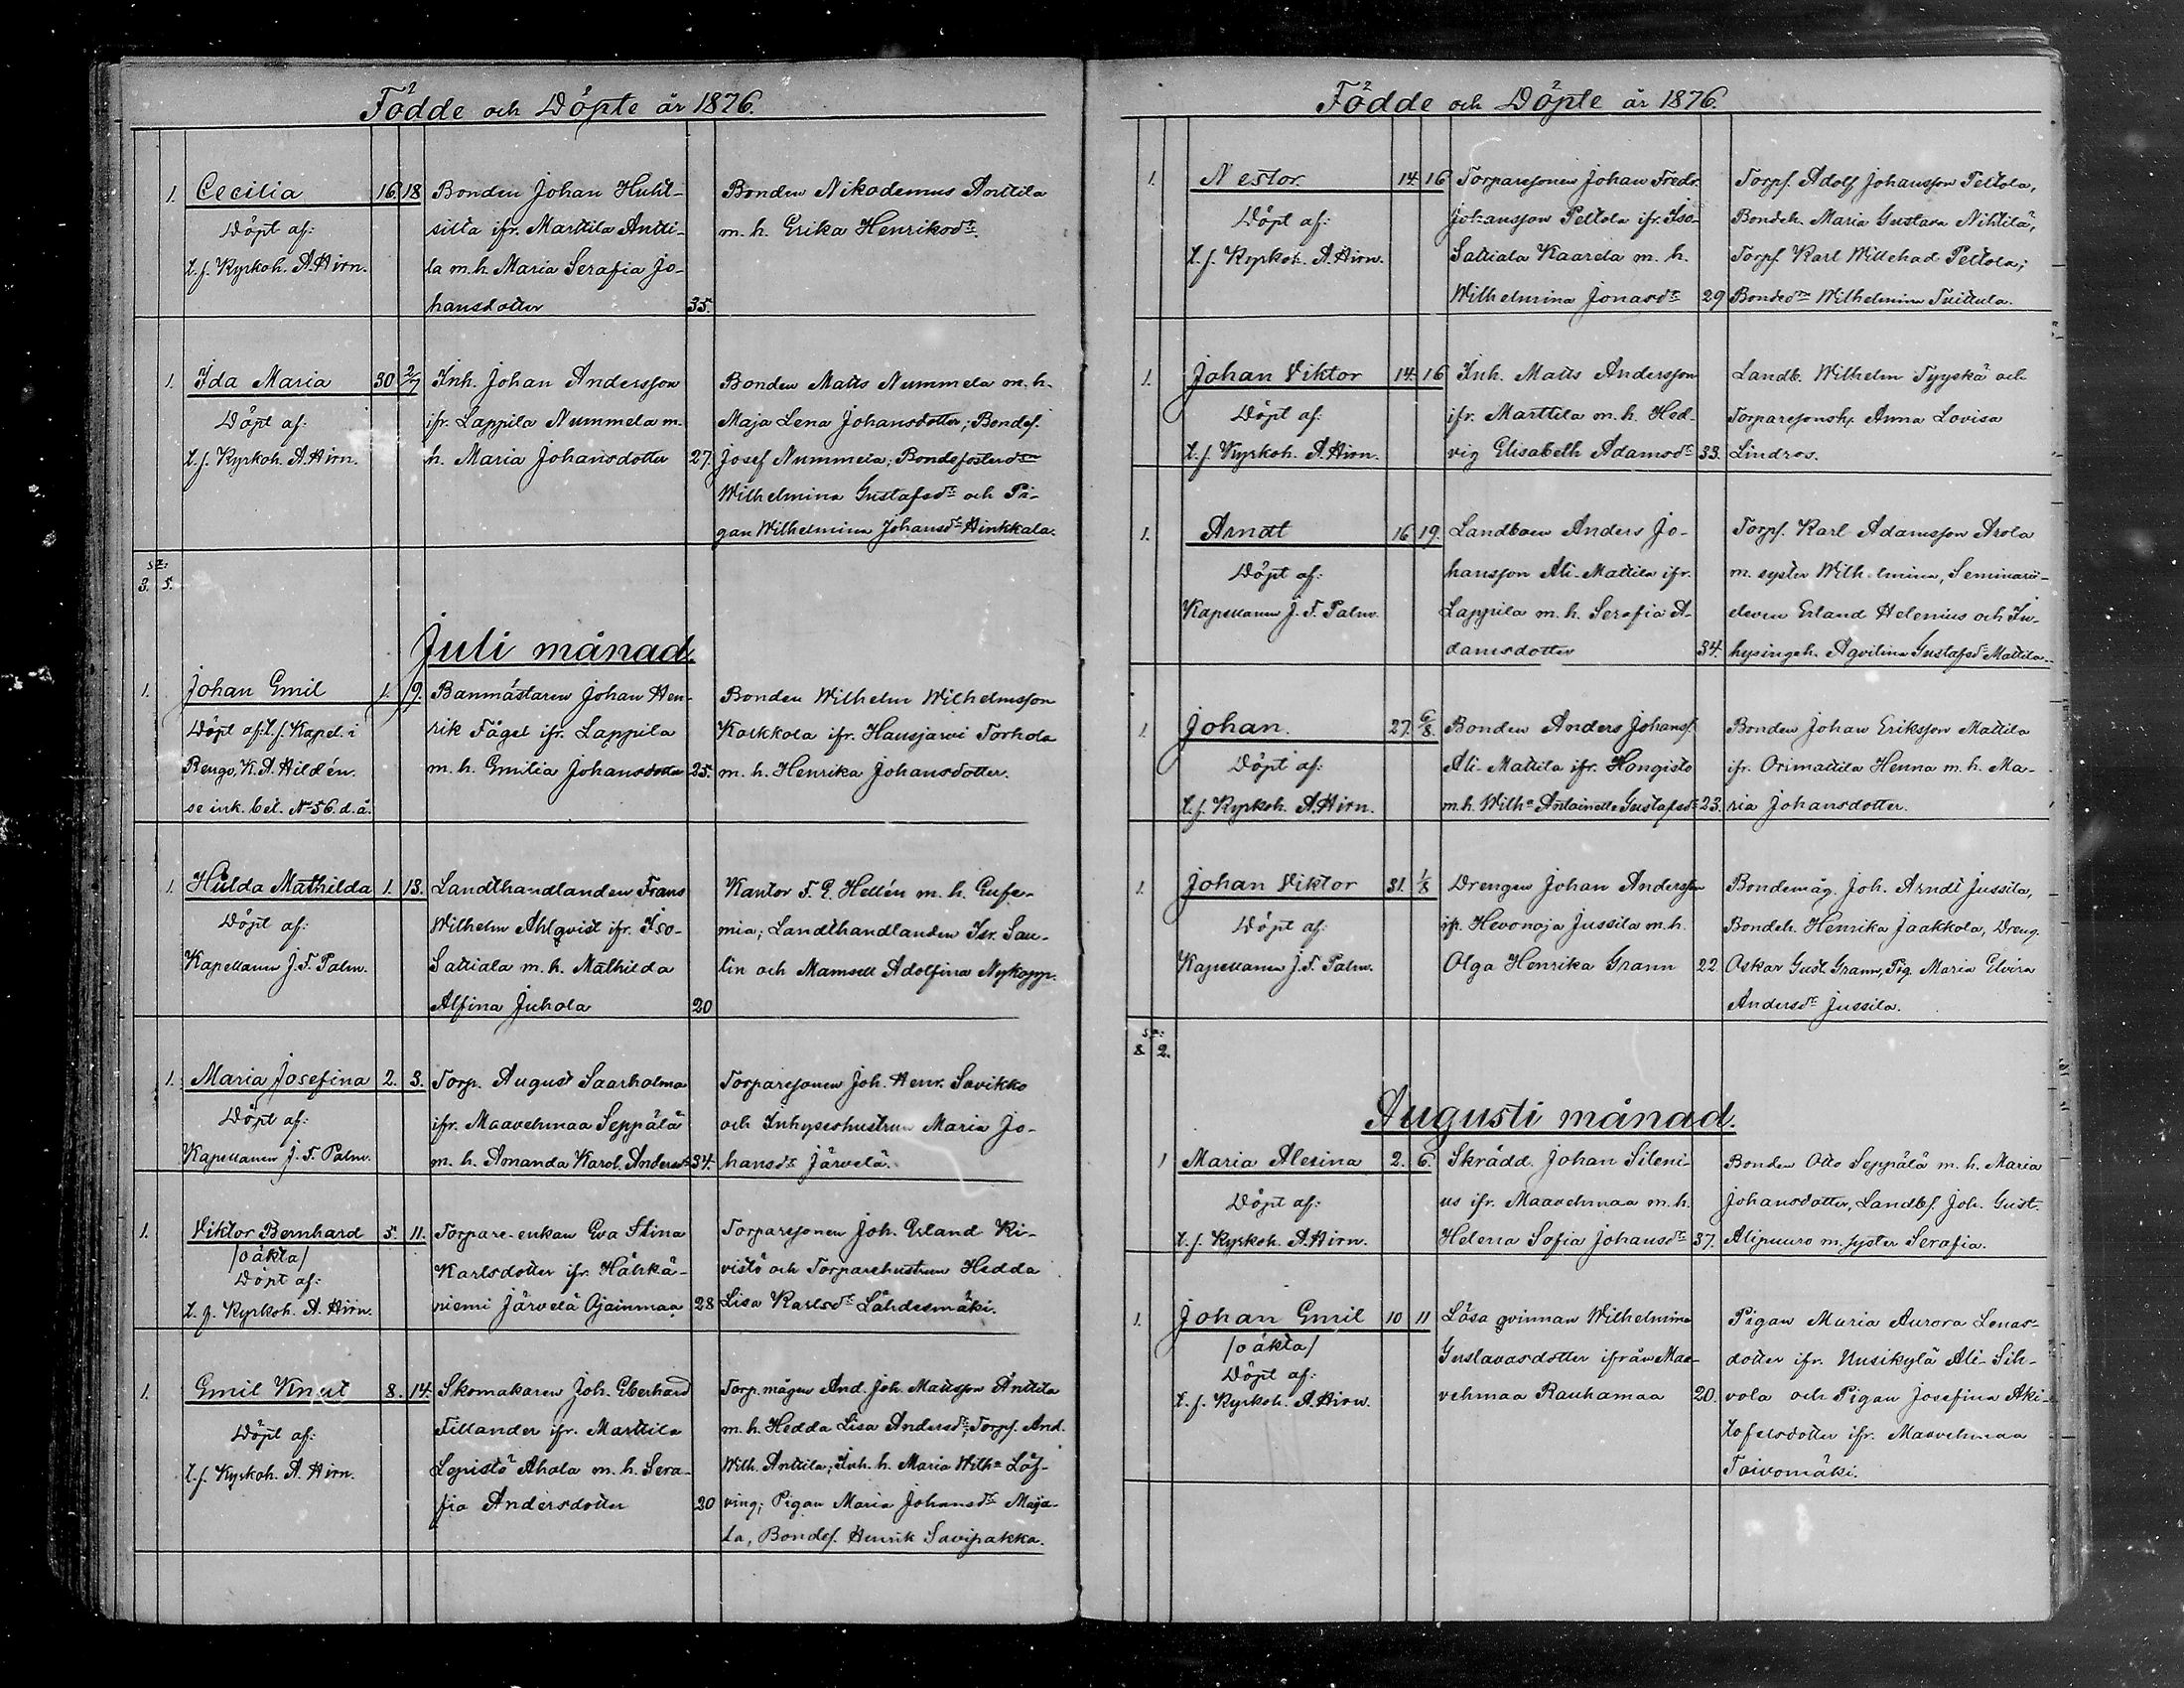 Födde och Döpte år 1876.
1. Cecilia 16. 18 Bonden Johan Huht- Bonden Nikodemus Anttila
Döpt af: silta ifr. Marttila Antti- m. h. Erika Henriksdr.
t. f. Kyrkoh. A. Hirn. la m. h. Maria Serafia Jo-
hansdotter 35.
1. Ida Maria 30 2/7 Inh. Johan Andersson Bonden Matts Nummela m. h.
Döpt af: ifr. Lappila Nummela m. Maja Lena Johansdotter; Bondes.
t. f. Kyrkoh. A. Hirn. h. Maria Johansdotter 27. Josef Nummela; Bondefosterdrn
Wilhelmina Gustafsdr och Pi-
gan Wilhelmina Johansdr Hinkkala.
sa:
3. 5.
Juli månad.
1. Johan Emil 1. 9. Banmästaren Johan Hen- Bonden Wilhelm Wilhelmsson
Döpt af: t. f. Kapel. i rik Fågel ifr. Lappila Karkkola ifr. Hausjärvi Torhola
Rengo, K. A. Hildén. m. h. Emilia Johansdotter 25. m. h. Henrika Johansdotter.
se ink. bet. No 56. d. å.
1. Hulda Mathilda 1. 13. Landthandlanden Frans Kantor F. E. Hellén m. h. Eufe-
Döpt af: Wilhelm Ahlqvist ifr. Iso- mia; Landthandlanden Isr. Sau-
Kapellanen J. F. Palm. Sattiala m. h. Mathilda lin och Mamsell Adolfina Nykopp.
Alfina Juhola 20
1. Maria Josefina 2. 3. Torp. August Saarholma Torparesonen Joh. Henr. Savikko
Döpt af: ifr. Maavehmaa Seppälä och Inhyseshustrun Maria Jo-
Kapellanen J. F. Palm. m. h. Amanda Karol. Andersdr 34. hansdr Järvelä.
1. Viktor Bernhard 5. 11. Torpare-enkan Eva Stina Torparesonen Joh. Erland Ki-
/oäkta/ Karlsdotter ifr. Hähkä- vistö och Torparehustrun Hedda
Döpt af: niemi Järvelä Ojainmaa 28 Lisa Karlsdr Lähdesmäki.
t. f. Kyrkoh. A. Hirn.
1. Emil Knut 8. 14. Skomakaren Joh. Eberhard Torp. mågen And. Joh. Mattsson Anttila
Döpt af: Tillander ifr. Marttila m. h. Hedda Lisa Andersdr; Torps. And.
t. f. Kyrkoh. A. Hirn. Lepistö Ahola m. h. Sera- Wilh. Anttila; Inh. h. Maria Wilha Löf-
fia Andersdotter 20 ving; Pigan Maria Johansdr Maja-
la, Bondes. Henrik Savipakka.
Födde och Döpte år 1876.
1. Nestor. 14. 16 Torparesonen Johan Fredr. Torps. Adolf Johansson Peltola,
Döpt af: Johansson Peltola ifr. Iso- Bondeh. Maria Gustava Nihtilä,
t. f. Kyrkoh. A. Hirn. Sattiala Kaarela m. h. Torps. Karl Willehad Peltola;
Wilhelmina Jonasdr 29 Bondedrn Wilhelmina Tuittula.
1. Johan Viktor 14. 16 Inh. Matts Andersson Landb. Wilhelm Tyyskä och
Döpt af: ifr. Marttila m. h. Hed- Torparesonsh. Anna Lovisa
t. f. Kyrkoh. A. Hirn. vig Elisabeth Adamsdr 33. Lindros.
1. Arndt 16 19. Landboen Anders Jo- Torps. Karl Adamsson Arola
Döpt af: hansson Ali-Mattila ifr. m. syster Wilhelmina, Seminarii-
Kapellanen J. F. Palm. Lappila m. h. Serafia A- eleven Erland Helenius och In-
damsdotter 34. hysingeh. Aqvilina Gustafsdr Mattila.
1. Johan. 27. 6/8. Bonden Anders Johanss. Bonden Johan Eriksson Mattila
Döpt af: Ali-Mattila ifr. Hongisto ifr. Orimattila Henna m. h. Ma-
t. f. Kyrkoh. A. Hirn. m. h. Wilha Antoinette Gustafsdr 23. ria Johansdotter.
1. Johan Viktor 31. 1/8 Drengen Johan Andersson Bondemåg. Joh. Arndt Jussila,
Döpt af: ifr. Hevonoja Jussila m. h. Bondeh. Henrika Jaakkola, Dreng.
Kapellanen J. F. Palm. Olga Henrika Grann 22. Oskar Gust. Grann, Pig. Maria Elvira
Andersdr Jussila.
sa:
8 2.
Augusti månad.
1 Maria Alexina 2. 6. Skrädd. Johan Sileni- Bonden Otto Seppälä m. h. Maria
Döpt af: us ifr. Maavehmaa m. h. Johansdotter, Landbs. Joh. Gust.
t. f. Kyrkoh. A. Hirn. Helena Sofia Johansdr 37. Alipuuro m. syster Serafia.
1. Johan Emil 10 11 Lösa qvinnan Wilhelmina Pigan Maria Aurora Lenas-
/oäkta/ Gustavasdotter ifrån Maa- dotter ifr. Uusikylä Ali-Sih-
Döpt af: vehmaa Rauhamaa 20. vola och Pigan Josefina Aki-
t. f. Kyrkoh. A. Hirn. tofelsdotter ifr. Maavehmaa
Toivomäki.